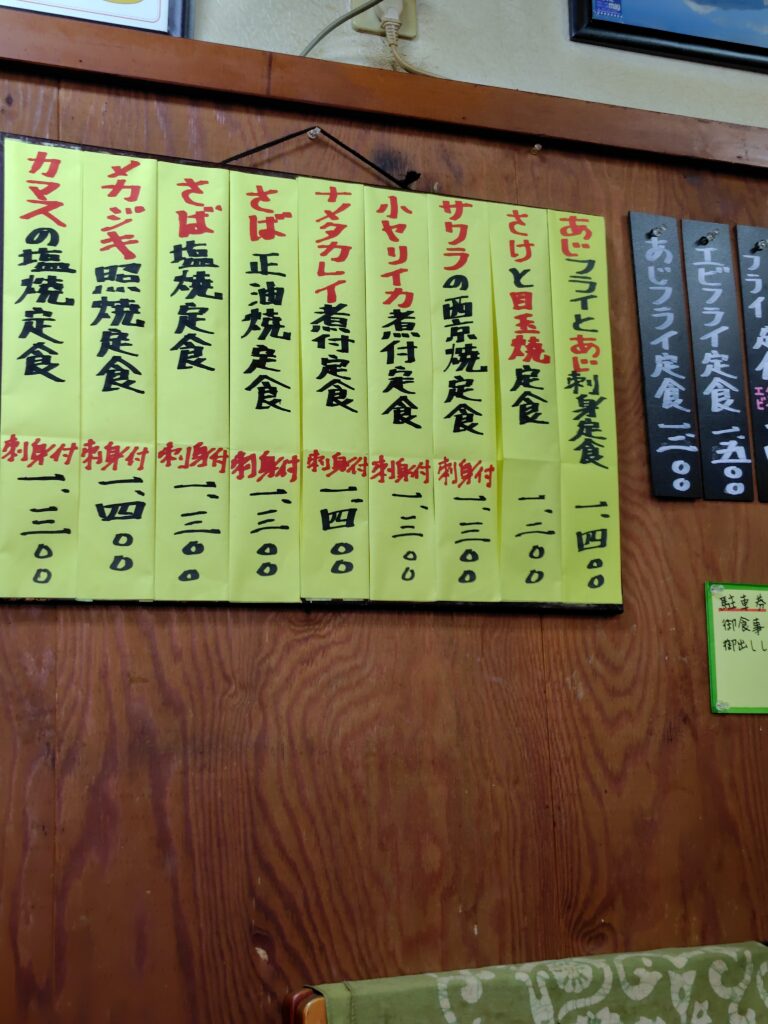 あじフライとあじ刺身定食 一、四〇〇
さけと目玉焼定食 一、二〇〇
サワラの西京焼定食 刺身付 一、三〇〇
小ヤリイカ煮付定食 刺身付 一、三〇〇
ナメタカレイ煮付定食 刺身付 一、四〇〇
さば正油焼定食 刺身付 一、三〇〇
さば塩焼定食 刺身付 一、三〇〇
メカジキ照焼定食 刺身付 一、四〇〇
カマスの塩焼定食 刺身付 一、三〇〇
フライ定
エビフライ定食 一五〇〇
あじフライ定食 一二〇〇
駐車券
御食事
御出し